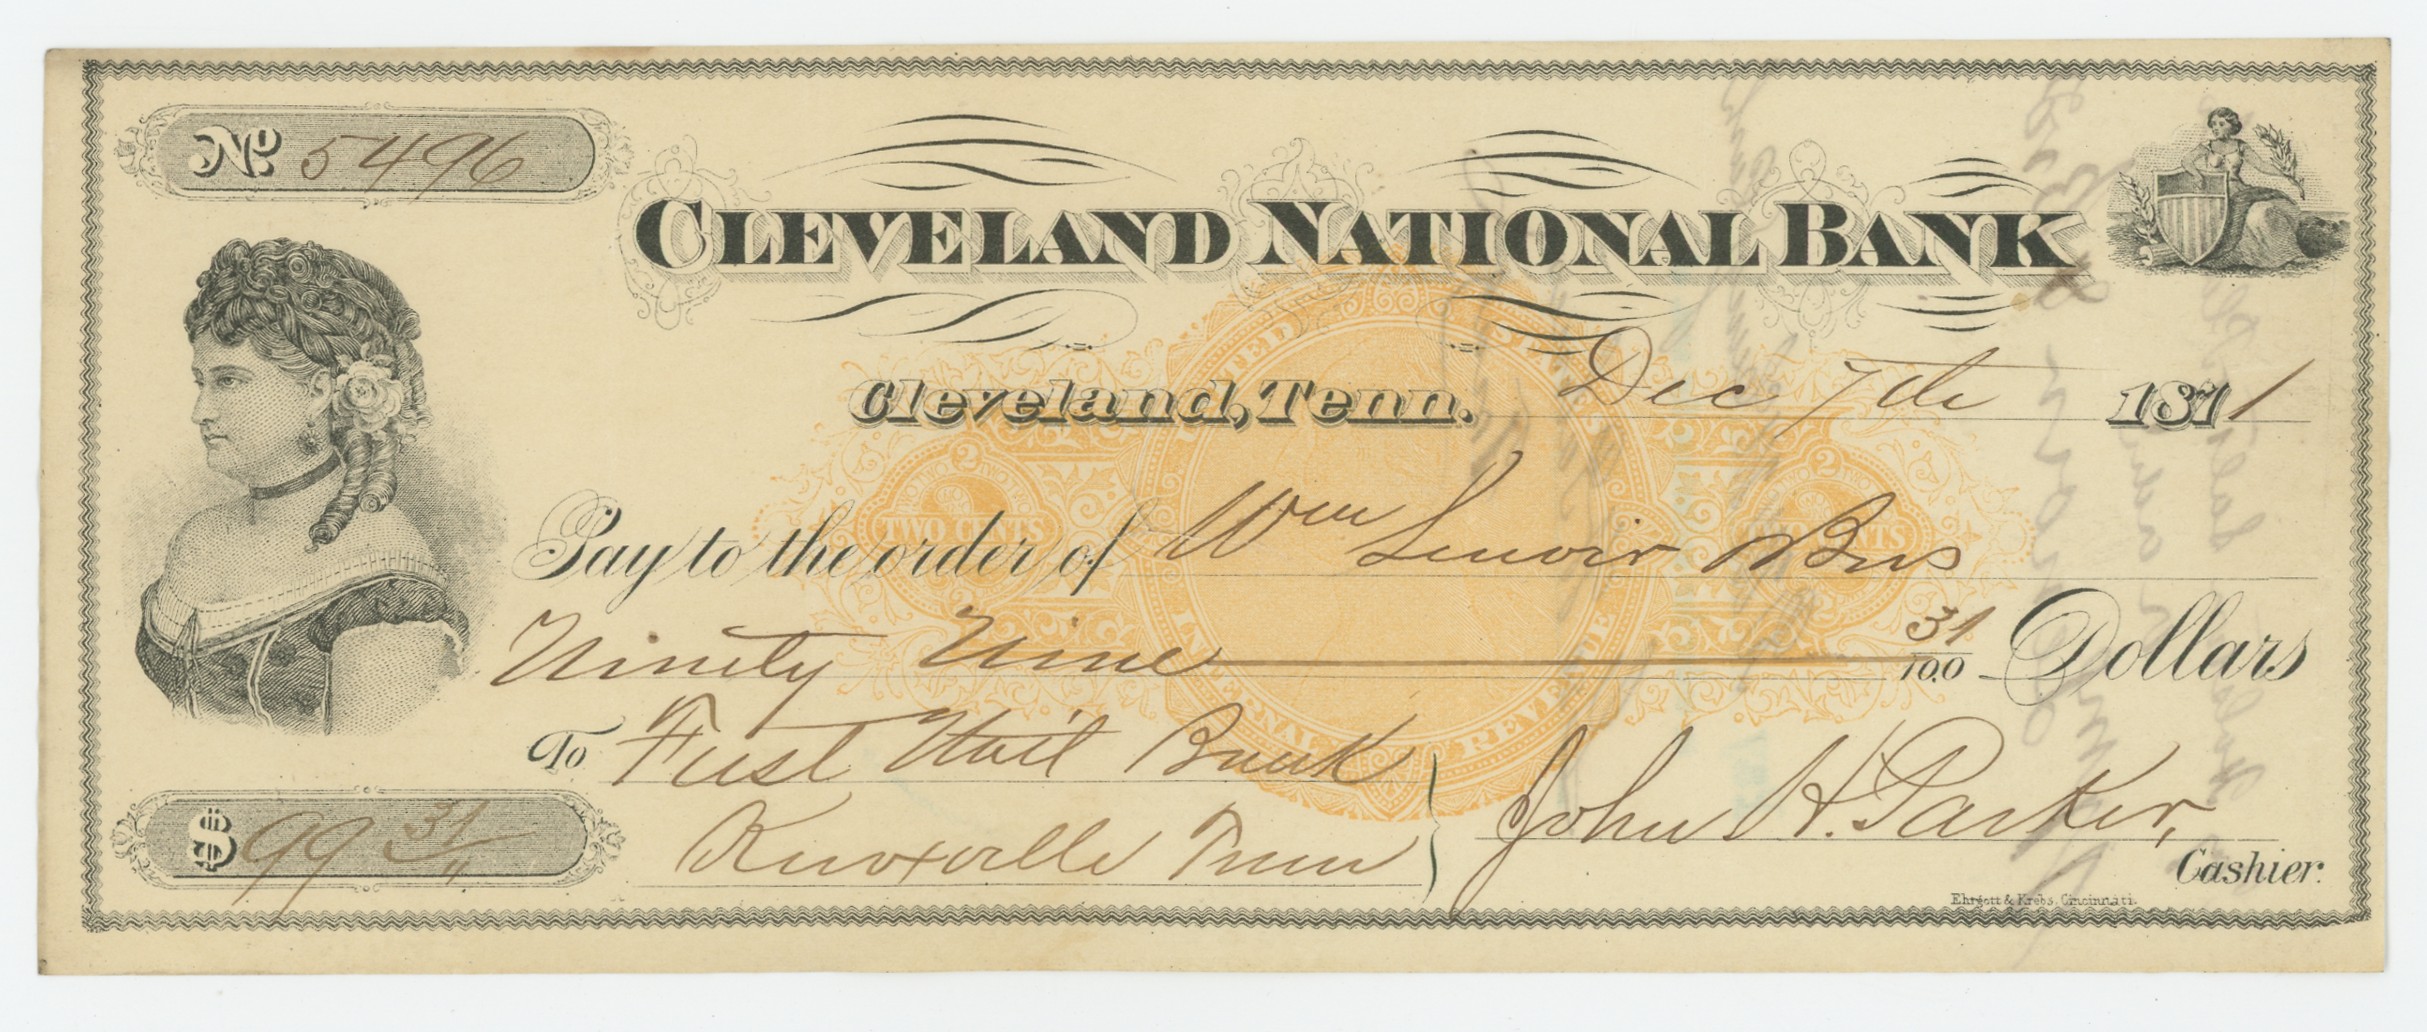 No. 5496
CLEVELAND NATIONAL BANK
Cleveland, Tenn. Dec 7th 1871
UNITED STATES
INTERNAL REVENUE
TWO CENTS
2
2
CENTS
Pay to the order of Wm Lenoir Bros
Ninety Nine 31/100 Dollars
To First Natl Bank
Knoxville Tenn
$99 31/"
John H. Parker,
Cashier.
Ehrgott & Krebs, Cincinnati.